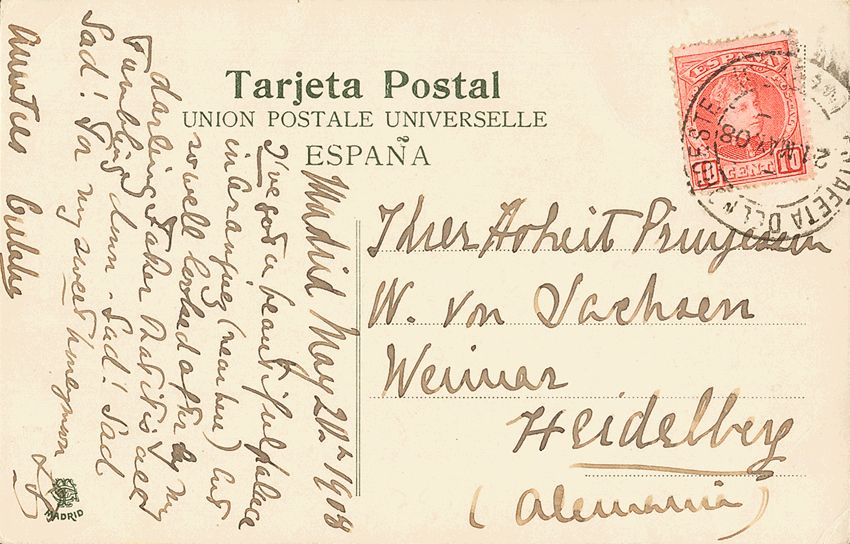 Tarjeta Postal
UNION POSTALE UNIVERSELLE
ESPAÑA
ESPAÑA
10 CENT 10
21 MAY 08
ESTAFETA DEL
Madrid May 20th 1908
I've got a beautiful palace
in Aranjuez (near here) but
so well looked after by my
darling Father that it is all
Tumbling down. Sad! Sad
Sad! For my sweet honeymoon
Ihrer Hoheit Prinzessin
W. von Sachsen
Weimar
Heidelberg
(Alemania)
MADRID